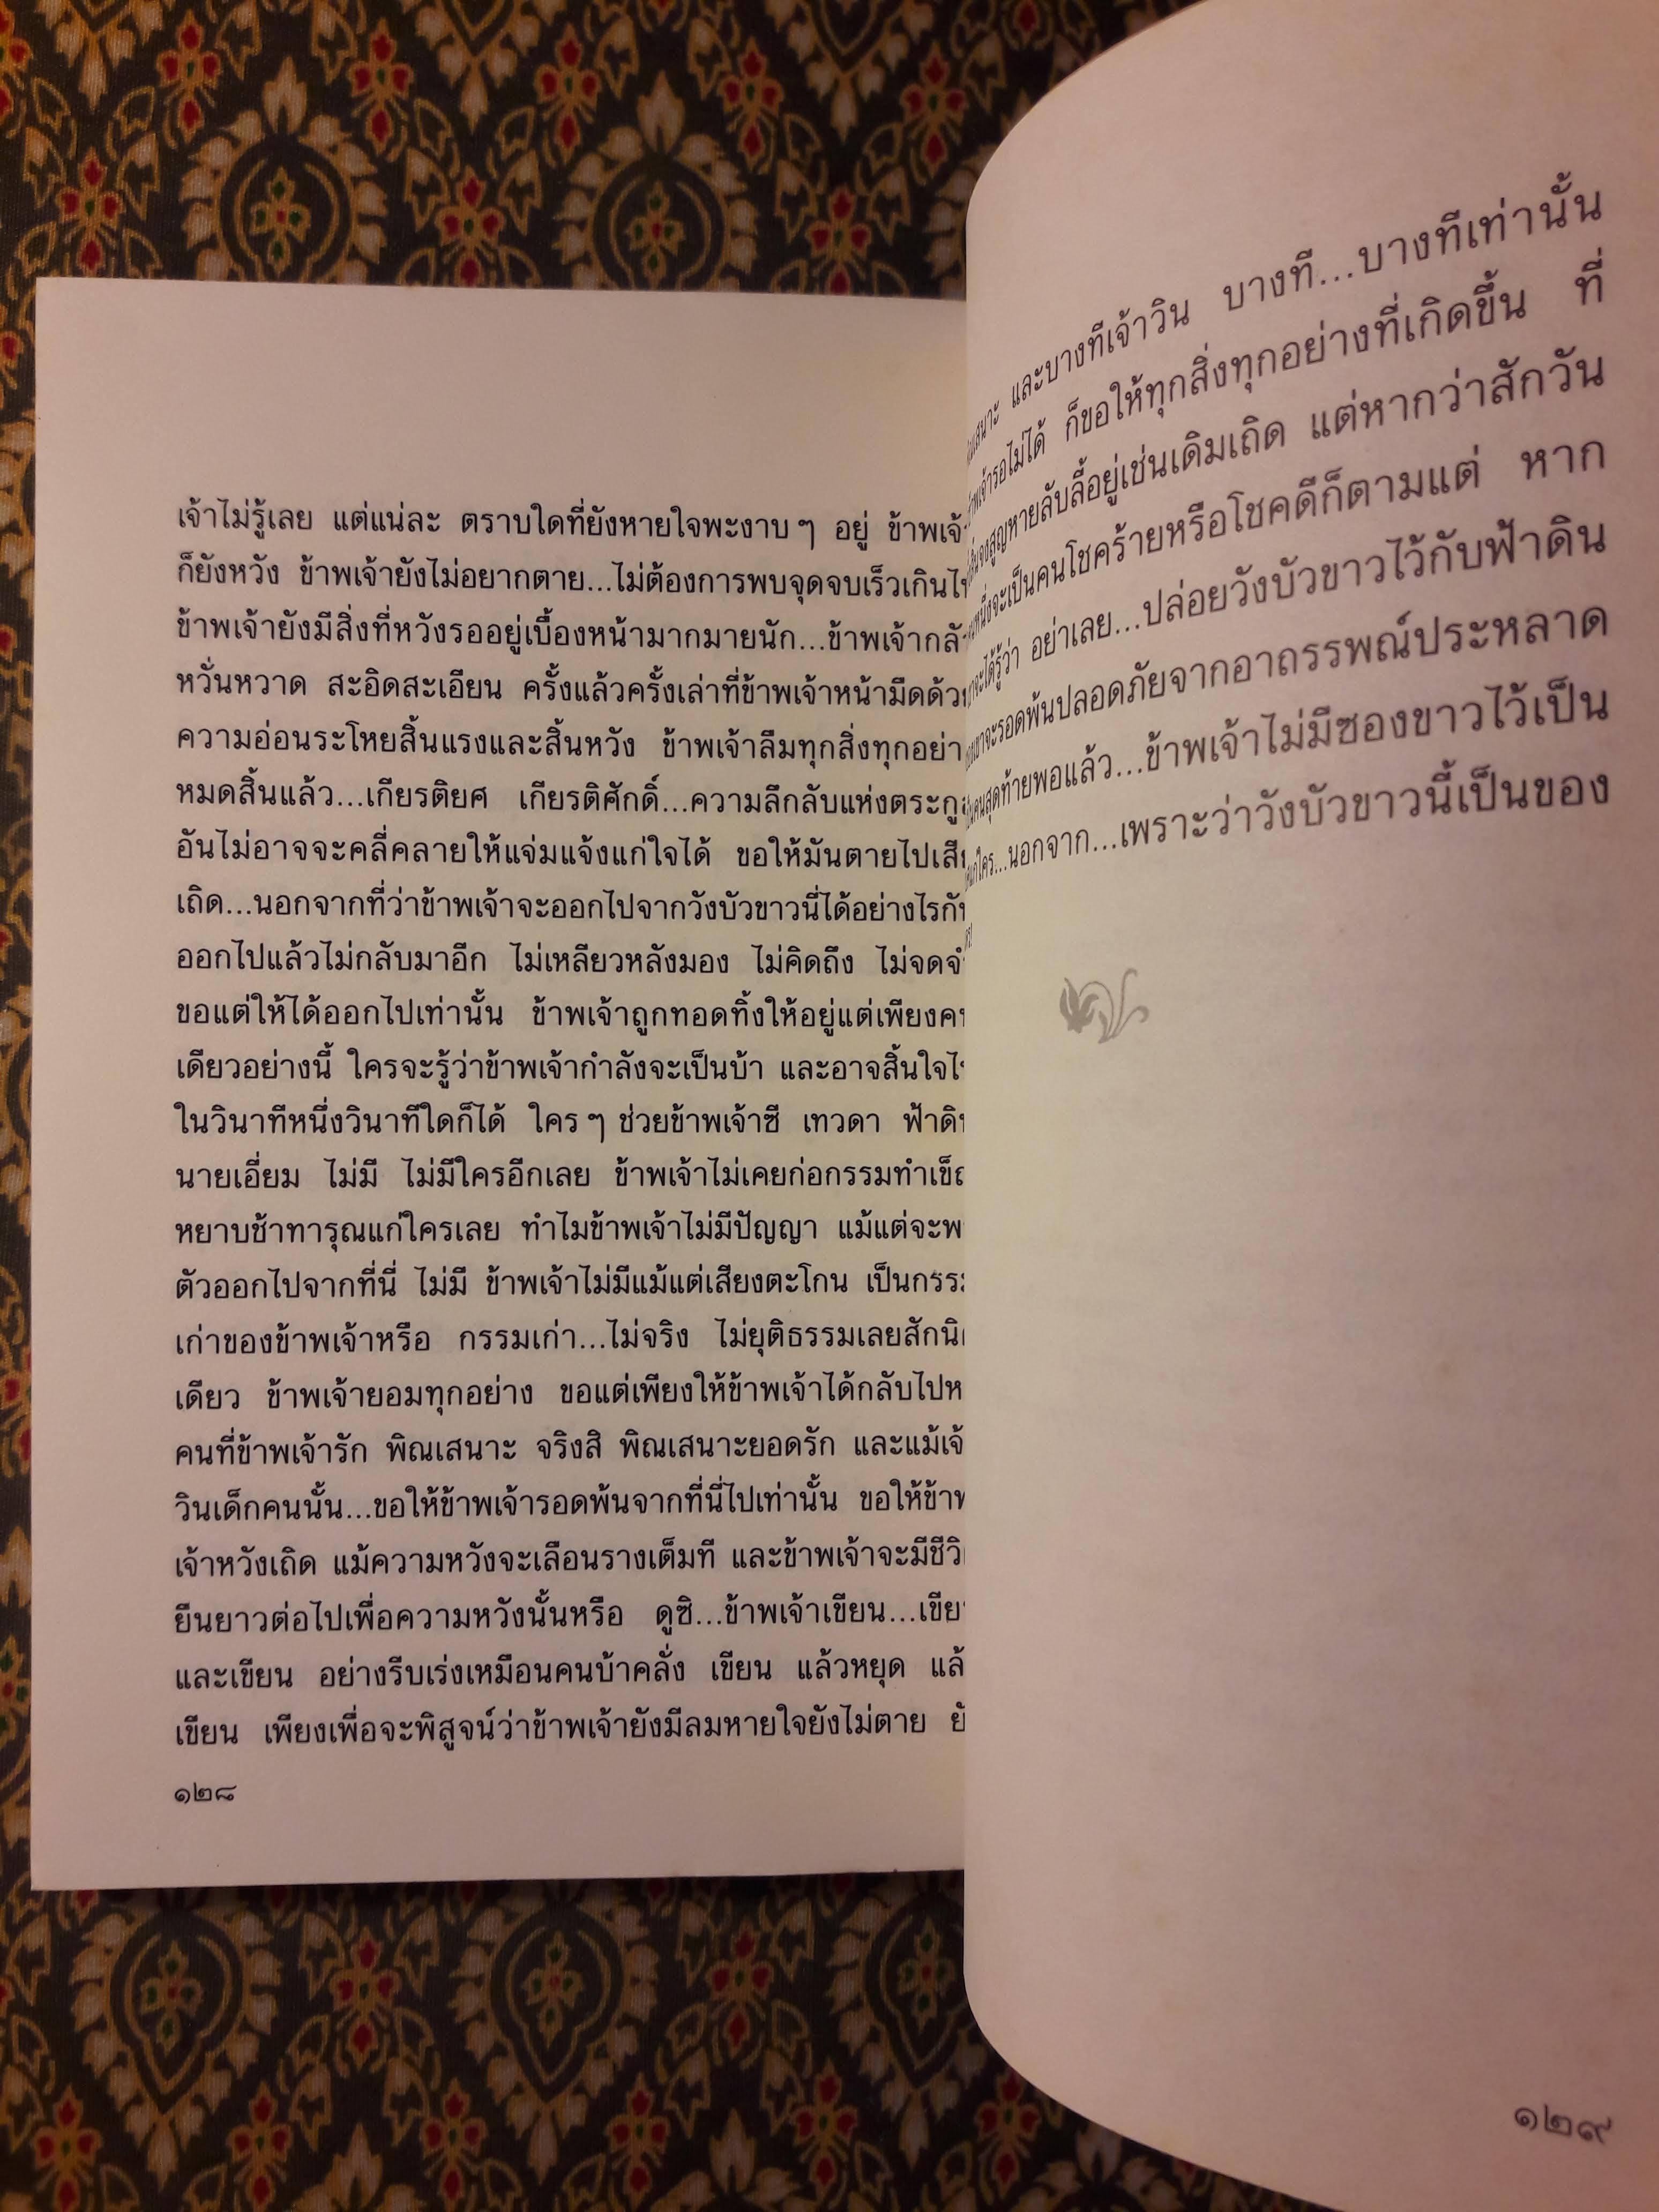 เจ้าไม่รู้เลย แต่แน่ละ ตราบใดที่ยังหายใจพะงาบ ๆ อยู่
ก็ยังหวัง ข้าพเจ้ายังไม่อยากตาย...ไม่ต้องการพบจุดจบเร็วเกิน
ข้าพเจ้ายังมีสิ่งที่หวังรออยู่เบื้องหน้ามากมายนัก...ข้าพเจ้า
หวั่นหวาด สะอิดสะเอียน ครั้งแล้วครั้งเล่าที่ข้าพเจ้าหน้ามืด
ความอ่อนระโหยสิ้นแรงและสิ้นหวัง ข้าพเจ้าลืมทุกสิ่งทุก
หมดสิ้นแล้ว...เกียรติยศ เกียรติศักดิ์...ความลึกลับแห่ง
อันไม่อาจจะคลี่คลายให้แจ่มแจ้งแก่ใจได้ ขอให้มันตายไป
เถิด...นอกจากที่ว่าข้าพเจ้าจะออกไปจากวังบัวขาวนี่ได้อย่างไร
ออกไปแล้วไม่กลับมาอีก ไม่เหลียวหลังมอง ไม่คิดถึง
ขอแต่ให้ได้ออกไปเท่านั้น ข้าพเจ้าถูกทอดทิ้งให้อยู่แต่เพียง
เดียวอย่างนี้ ใครจะรู้ว่าข้าพเจ้ากำลังจะเป็นบ้า และอาจสิ้นใจ
ในวินาทีหนึ่งวินาทีใดก็ได้ ใคร ๆ ช่วยข้าพเจ้าซี เทวดา
นายเอี่ยม ไม่มี ไม่มีใครอีกเลย ข้าพเจ้าไม่เคยก่อกรรมทำ
หยาบช้าทารุณแก่ใครเลย ทำไมข้าพเจ้าไม่มีปัญญา แม้แต่จะ
ตัวออกไปจากที่นี่ ไม่มี ข้าพเจ้าไม่มีแม้แต่เสียงตะโกน เป็น
เก่าของข้าพเจ้าหรือ กรรมเก่า...ไม่จริง ไม่ยุติธรรมเลยสัก
เดียว ข้าพเจ้ายอมทุกอย่าง ขอแต่เพียงให้ข้าพเจ้าได้กลับไป
คนที่ข้าพเจ้ารัก พิณเสนาะ จริงสิ พิณเสนาะยอดรัก และแม้
วินเด็กคนนั้น...ขอให้ข้าพเจ้ารอดพ้นจากที่นี่ไปเท่านั้น ขอให้
เจ้าหวังเถิด แม้ความหวังจะเลือนรางเต็มที และข้าพเจ้าจะมี
ยืนยาวต่อไปเพื่อความหวังนั้นหรือ ดูซิ...ข้าพเจ้าเขียน...
และเขียน อย่างรีบเร่งเหมือนคนบ้าคลั่ง เขียน แล้วหยุด
เขียน เพียงเพื่อจะพิสูจน์ว่าข้าพเจ้ายังมีลมหายใจยังไม่ตาย
๑๒๘
และบางทีเจ้าวิน บางที...บางทีเท่านั้น
รอไม่ได้ ก็ขอให้ทุกสิ่งทุกอย่างที่เกิดขึ้น ที่
สูญหายลับลี้อยู่เช่นเดิมเถิด แต่หากว่าสักวัน
จะเป็นคนโชคร้ายหรือโชคดีก็ตามแต่ หาก
จะได้รู้ว่า อย่าเลย...ปล่อยวังบัวขาวไว้กับฟ้าดิน
จะรอดพ้นปลอดภัยจากอาถรรพณ์ประหลาด
สุดท้ายพอแล้ว...ข้าพเจ้าไม่มีซองขาวไว้เป็น
ใคร...นอกจาก...เพราะว่าวังบัวขาวนี้เป็นของ
๑๒๙